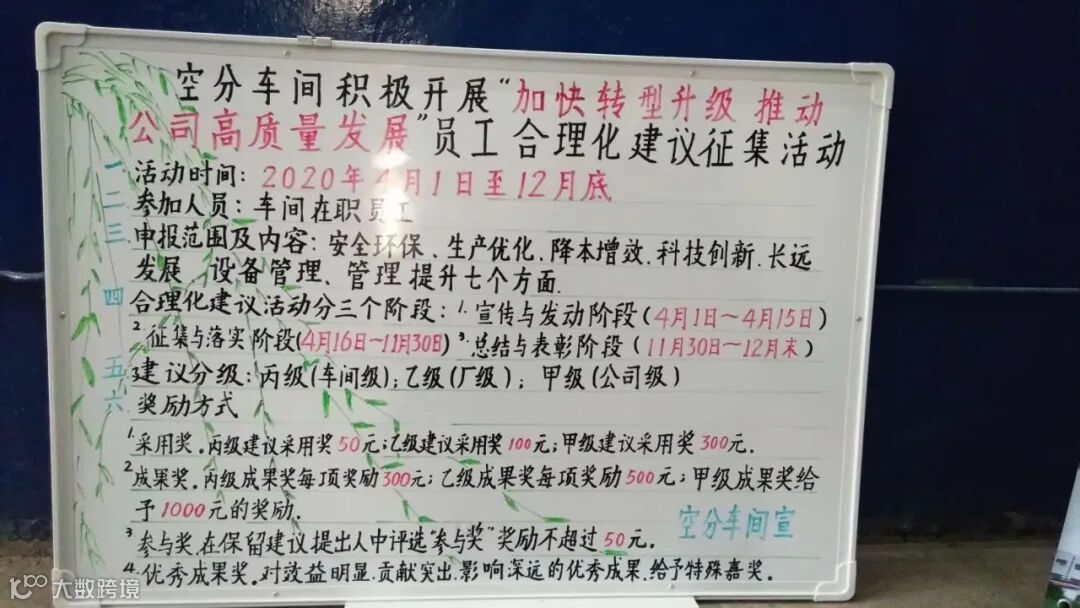 空分车间积极开展“加快转型升级 推动
公司高质量发展”员工合理化建议征集活动
一 活动时间: 2020年4月1日至12月底
二 参加人员: 车间在职员工
三 申报范围及内容: 安全环保、生产优化、降本增效、科技创新、长远
发展、设备管理、管理提升七个方面.
四 合理化建议活动分三个阶段: 1.宣传与发动阶段(4月1日~4月15日)
2.征集与落实阶段(4月16日~11月30日) 3.总结与表彰阶段(11月30日~12月末)
五 建议分级: 丙级(车间级); 乙级(厂级); 甲级(公司级)
六 奖励方式
1.采用奖.丙级建议采用奖50元;乙级建议采用奖100元;甲级建议采用奖300元.
2.成果奖.丙级成果奖每项奖励300元;乙级成果奖每项奖励500元;甲级成果奖给
予1000元的奖励.
3.参与奖.在保留建议提出人中评选“参与奖”奖励不超过50元.
4.优秀成果奖.对效益明显.贡献突出.影响深远的优秀成果.给予特殊嘉奖。
空分车间宣
大数跨境